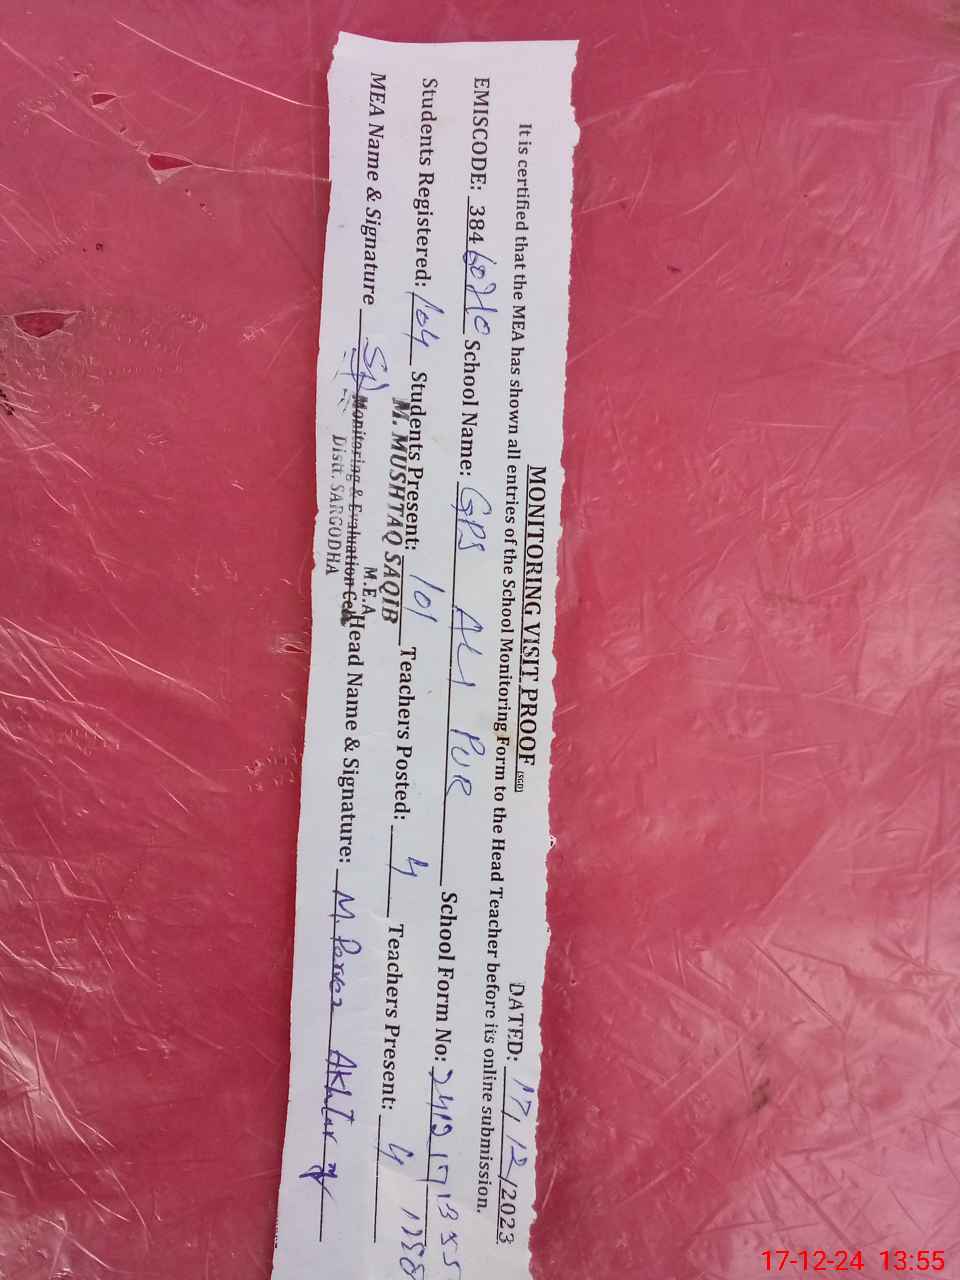 MONITORING VISIT PROOF (SGD)
DATED: 17/12/2023
It is certified that the MEA has shown all entries of the School Monitoring Form to the Head Teacher before its online submission.
EMISCODE: 384 School Name: GPS ALI PUR School Form No:
Students Registered: 104 Students Present: 101 Teachers Posted: 4 Teachers Present: 4
M. MUSHTAQ SAQIB
M.E.A
MEA Name & Signature Head Name & Signature: M. Pervez Akhtar
Monitoring & Evaluation Cell
Distt. SARGODHA
17-12-24 13:55